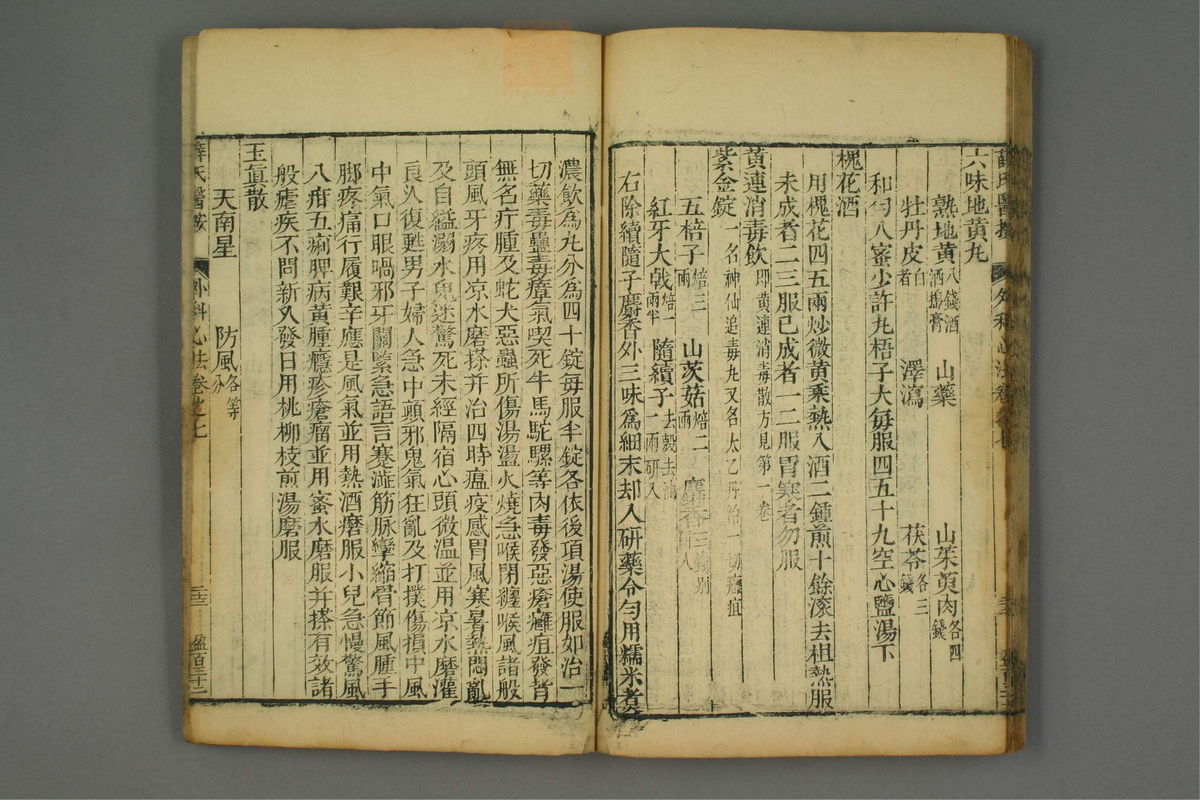 薛氏醫按 外科心法卷之七
六味地黃丸
熟地黃八錢酒酒搗膏 山藥 山茱萸肉各四錢
牡丹皮白者 澤瀉 茯苓各三錢
和勻入蜜少許丸梧子大每服四五十丸空心鹽湯下
槐花酒
用槐花四五兩炒微黃乘熱入酒二鍾煎十餘滾去柤熱服
未成者二三服已成者一二服胃寒者勿服
黃連消毒飲即黃連消毒散方見第一卷
紫金錠一名神仙追毒丸又名太乙丹治一切癰疽
五棓子焙三兩 山茨菇焙二兩 麝香三錢別入
紅牙大戟焙一兩半 隨續子去殼去油一兩研入
右除續隨子麝香外三味爲細末却入研藥令勻用糯米煮
濃飲為丸分為四十錠每服半錠各依後項湯使服如治一
切藥毒蠱毒瘴氣喫死牛馬駝騾等肉毒發惡瘡癰疽發背
無名疔腫及蛇犬惡蟲所傷湯盪火燒急喉閉纏喉風諸般
頭風牙疼用凉水磨搽并治四時瘟疫感胃風寒暑熱悶亂
及自縊溺水鬼迷驚死未經隔宿心頭微温並用凉水磨灌
良久復甦男子婦人急中顛邪鬼氣狂亂及打撲傷損中風
中氣口眼喎邪牙關緊急語言蹇澁筋脉攣縮骨節風腫手
脚疼痛行履艱辛應是風氣並用熱酒磨服小兒急慢驚風
八疳五痢脾病黃腫癮疹瘡瘤並用蜜水磨服并搽有效諸
般瘧疾不問新久發日用桃柳枝煎湯磨服
玉眞散
天南星 防風各等分
薛氏醫按 外科心法卷之七 三三 盈百三十二